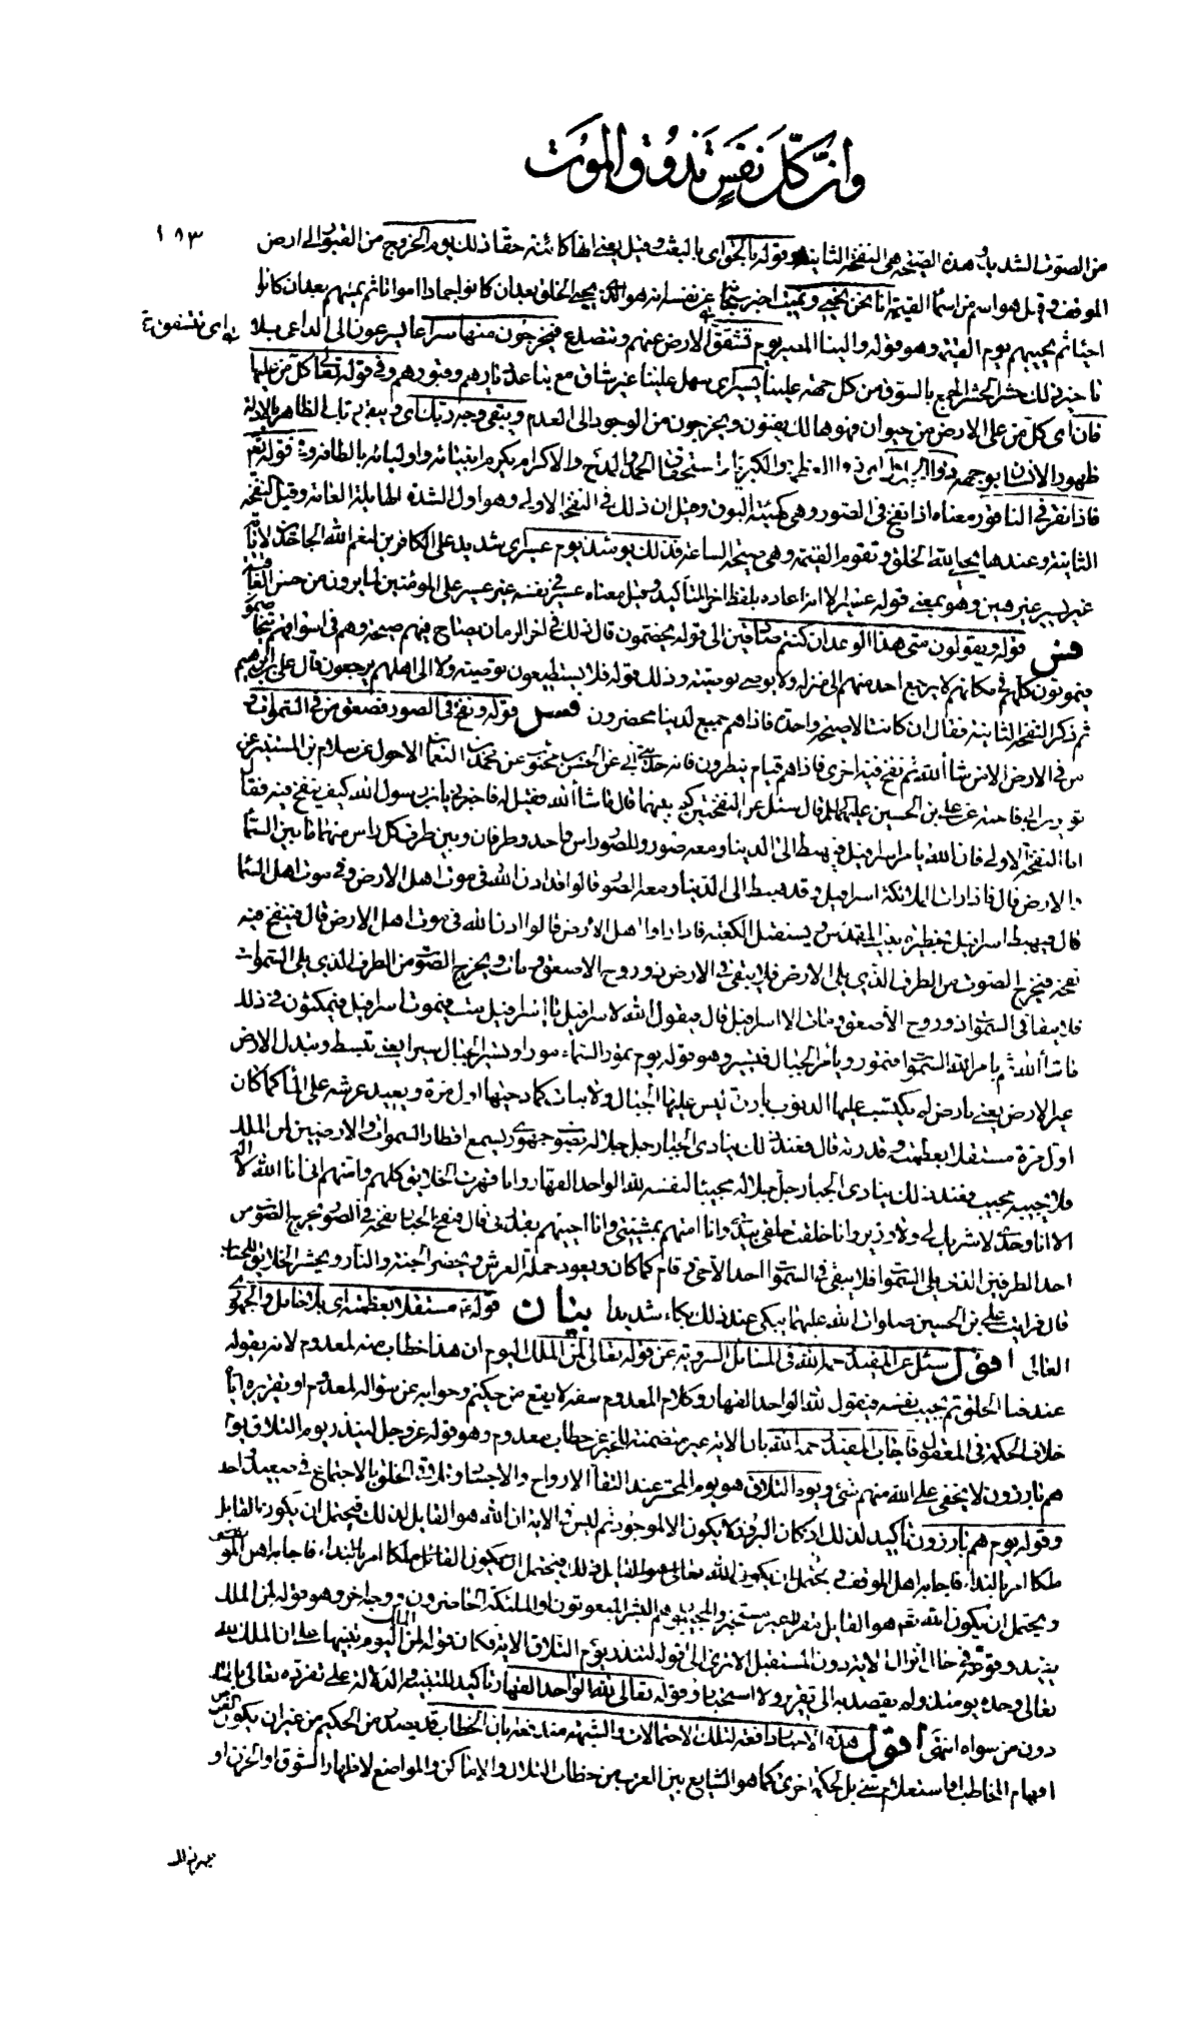 وان كل نفس تذوق الموت
١٨٣
من الصوت الشديد هذه الصيحة هي النفخة الثانية وقوله بالحق اى بالبعث وقيل يعنى انها كائنة حقا ذلك يوم الخروج من القبور الى ارض
الموقف وقيل هو اسم من اسماء القيمة انا نحن نحيى ونميت اخبر سبحانه عن نفسه انه هو الذى يحيى الخلق بعد ان كانوا جمادا امواتا ثم يميتهم بعد ان كانوا
احياء ثم يحييهم يوم القيمة وهو قوله والينا المصير يوم تشقق الارض عنهم وتتصدع فيخرجون منها سراعا يسرعون الى الداعى بلا
اى تتشقق
تاخير ذلك حشر الحشر الجمع بالسوق من كل جهة علينا يسير اى سهل علينا غير شاق مع تباعد ديارهم وقبورهم وفى قوله تعالى كل من عليها
فان اى كل من على الارض من حيوان فهو هالك يفنون ويخرجون من الوجود الى العدم ويبقى وجه ربك اى ويبقى ربك الظاهر بالادلة
ظهور الانسان بوجهه ذو الجلال اى ذو العظمة والكبرياء واستحقاق الحمد والمدح والاكرام يكرم انبيائه واوليائه بالطافه وفى قوله تعالى
فاذا نقر فى الناقور معناه اذا نفخ فى الصور وهى كهيئة البوق وقيل ان ذلك فى النفخة الاولى وهو اول الشدة الهائلة العامة وقيل النفخة
الثانية وعندها يحيى الله الخلق وتقوم القيمة وهى صيحة الساعة فذلك يومئذ يوم عسير اى شديد على الكافرين لنعم الله الجاحدين لاياته
غير يسير غير هين وهو بمعنى قوله عسير الا انه اعاده بلفظ اخر للتأكيد وقيل معناه عسير فى نفسه غير عسير على المؤمنين لما يرون من حسن العاقبة
فس قوله ويقولون متى هذا الوعد ان كنتم صادقين الى قوله يخصمون قال ذلك فى اخر الزمان يصاح فيهم صيحة وهم فى اسواقهم يتخاصمون
فيموتون كلهم فى مكانهم لا يرجع احد منهم الى منزله ولا يوصى بوصية وذلك قوله فلا يستطيعون توصية ولا الى اهلهم يرجعون قال على بن ابرهيم
ثم ذكر النفخة الثانية فقال ان كانت الا صيحة واحدة فاذا هم جميع لدينا محضرون فس قوله ونفخ فى الصور فصعق من فى السموات
ومن فى الارض الا من شاء الله ثم نفخ فيه اخرى فاذا هم قيام ينظرون فانه حدثنى ابى عن الحسن بن محبوب عن محمد بن النعمان الاحول عن سلام بن المستنير عن
ثوير بن ابى فاختة عن على بن الحسين عليهما السلم قال سئل عن النفختين كم بينهما قال ما شاء الله فقيل له فاخبرنى يابن رسول الله كيف ينفخ فيه فقال
اما النفخة الاولى فان الله يامر اسرافيل فيهبط الى الدنيا ومعه صور وللصور راس واحد وطرفان وبين طرف كل راس منهما ما بين السماء
والارض قال فاذا رات الملائكة اسرافيل وقد هبط الى الدنيا ومعه الصور قالوا قد اذن الله فى موت اهل الارض وفى موت اهل السماء
قال فيهبط اسرافيل بحظيرة بيت المقدس ويستقبل الكعبة فاذا راوا اهل الارض قالوا اذن الله فى موت اهل الارض قال فينفخ فيه
نفخة فيخرج الصوت من الطرف الذى يلى الارض فلا يبقى فى الارض ذو روح الا صعق ومات ويخرج الصوت من الطرف الذى يلى السموات
فلا يبقى فى السموات ذو روح الا صعق ومات الا اسرافيل قال فيقول الله لاسرافيل يا اسرافيل مت فيموت اسرافيل فيمكثون فى ذلك
ما شاء الله ثم يامر الله السموات فتمور ويامر الجبال فتسير وهو قوله يوم تمور السماء مورا وتسير الجبال سيرا يعنى تبسط وتبدل الارض
غير الارض يعنى بارض لم يكتسب عليها الذنوب بارزة ليس عليها الجبال ولا نبات كما دحيها اول مرة ويعيد عرشه على الماء كما كان
اول مرة مستقلا بعظمته وقدرته قال فعند ذلك ينادى الجبار جل جلاله بصوت جهورى يسمع اقطار السموات والارضين لمن الملك اليوم
فلا يجيبه مجيب فعند ذلك ينادى الجبار جل جلاله مجيبا لنفسه لله الواحد القهار وانا قهرت الخلايق كلهم وامتهم انى انا الله لا اله
الا انا وحدى لا شريك لى ولا وزير وانا خلقت خلقى بيدى وانا امتهم بمشيتى وانا احييهم بقدرتى قال فنفخ الجبار نفخة فى الصور يخرج الصوت من
احد الطرفين الذى يلى السموات فلا يبقى فى السموات احد الا حى وقام كما كان ويعود حملة العرش ويحضر الجنة والنار ويحشر الخلايق للحساب
قال فرايت على بن الحسين صلوات الله عليهما يبكى عند ذلك بكاء شديدا بيان قوله ع مستقلا بعظمته اى بلا حامل والجهورى
العالى اقول سئل عن المفيد رحمه الله فى المسائل السروية عن قوله تعالى لمن الملك اليوم ان هذا خطاب منه لمعدوم لانه يقوله
عند فناء الخلق ثم يجيب نفسه فيقول لله الواحد القهار وكلام المعدوم سفه لا يقع من حكيم وجوابه عن سؤاله لمعدوم او تقريره اياه
خلاف الحكمة فى المعقول فاجاب المفيد رحمه الله بان الاية غير متضمنة للخبر عن خطاب معدوم وهو قوله عز وجل لينذر يوم التلاق يوم
هم بارزون لا يخفى على الله منهم شىء ويوم التلاق هو يوم المحشر عند التقاء الارواح والاجساد وتلاقى الخلق بالاجتماع فى صعيد واحد
وقوله يوم هم بارزون تأكيد لذلك اذ كان البروز لا يكون الا لموجود ثم ليس فى الاية ان الله هو القايل لذلك فيحتمل ان يكون القايل
ملكا امر بالنداء فاجابه اهل الموقف
ويحتمل ان يكون الله تعم هو القايل مقررا غير مستخبر والمجيبون هم البشر المبعوثون او الملئكة الحاضرون ووجه اخر وهو قوله لمن الملك
يفيد وقوعه فى حال انزال الاية دون المستقبل الا ترى الى قوله لتنذر يوم التلاق الاية فكان قوله لمن الملك اليوم تنبيها على ان الملك لله
تعالى وحده يومئذ ولم يقصد به الى تقرير ولا استخبار وقوله تعالى لله الواحد القهار تأكيد للتنبيه والدلالة على تفرده تعالى بالملك
دون من سواه انتهى اقول هذه الاخبار دافعة لتلك الاحتمالات والشبهة مندفعة بان الخطاب قد يصدر من الحكيم من غير ان يكون الغرض
افهام المخاطب او استعلام شىء بل لحكمة اخرى كما هو الشايع بين العرب من خطاب التلال والاماكن والمواضع لاظهار الشوق او الحزن او